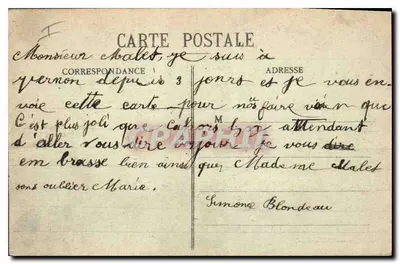 I
CARTE POSTALE
Monsieur Malet, je suis à
CORRESPONDANCE
ADRESSE
vernon depuis 3 jours et je vous en-
voie cette carte pour vous faire voir que
M
C'est plus joli que Cahors En attendant
d aller vous dire bonjour je vous dire
em brasse bien ainsi que, Madame Malet
sans oublier Maria.
Simone Blondeau